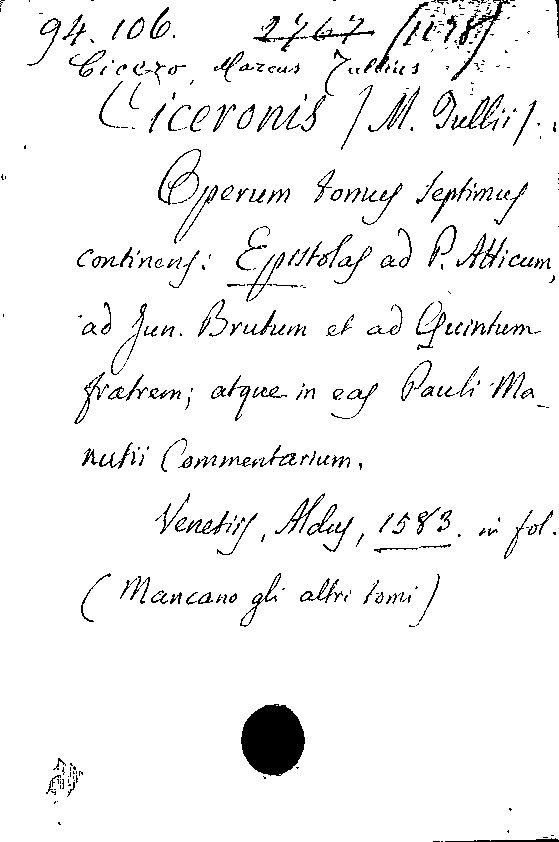 94. 106. 2767
Cicero, Marcus Tullius
Ciceronis / M. Tullii /.
Operum tomus septimus
continens: Epistolas ad P. Atticum,
ad Jun. Brutum et ad Quintum
fratrem; atque in eas Pauli Ma_
nutii Commentarium.
Venetiis, Aldus, 1583. in fol.
(Mancano gli altri tomi)